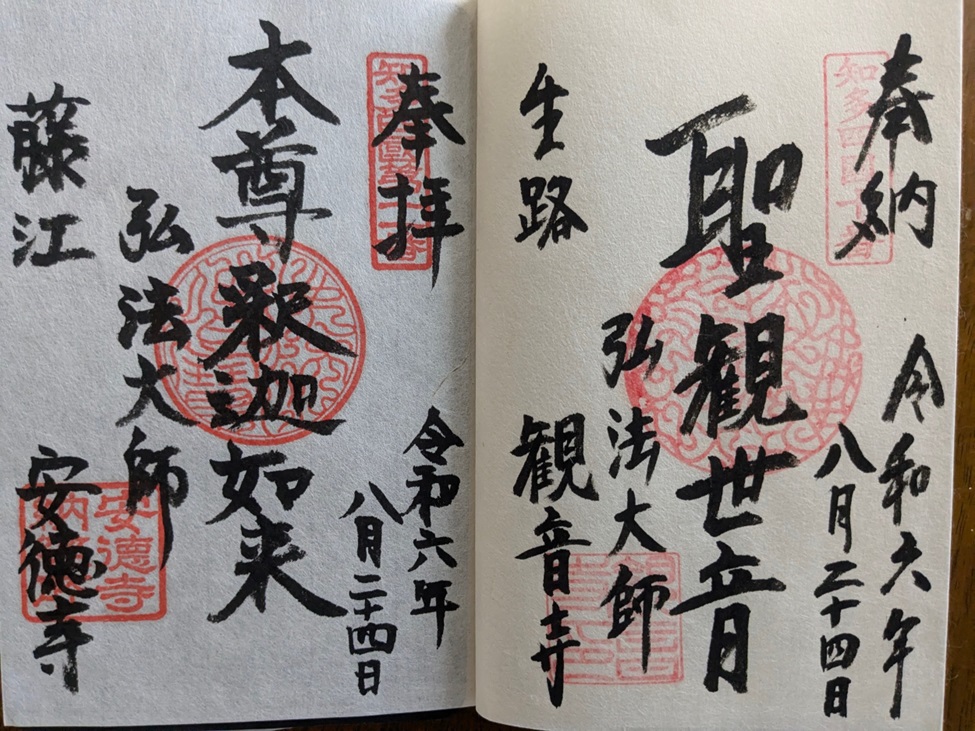 奉納
令和六年
八月二十四日
聖観世音
弘法大師
生路
観音寺
奉拝
令和六年
八月二十四日
本尊釈迦如来
弘法大師
藤江
安徳寺
安徳寺